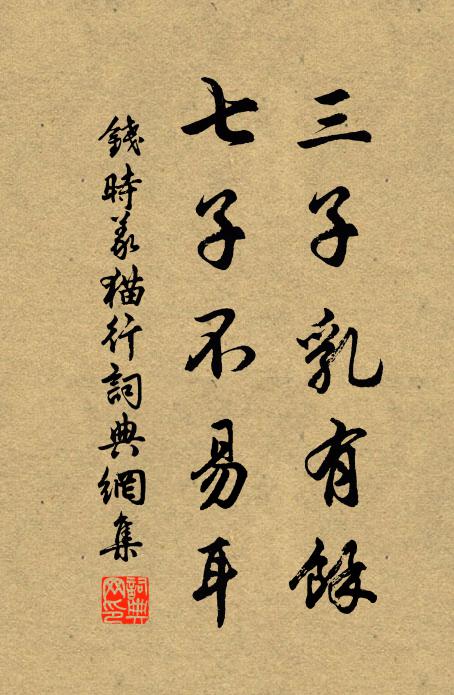 三子乳有餘
七子不易耳
錢時義猫行詞典網集
詞典网印